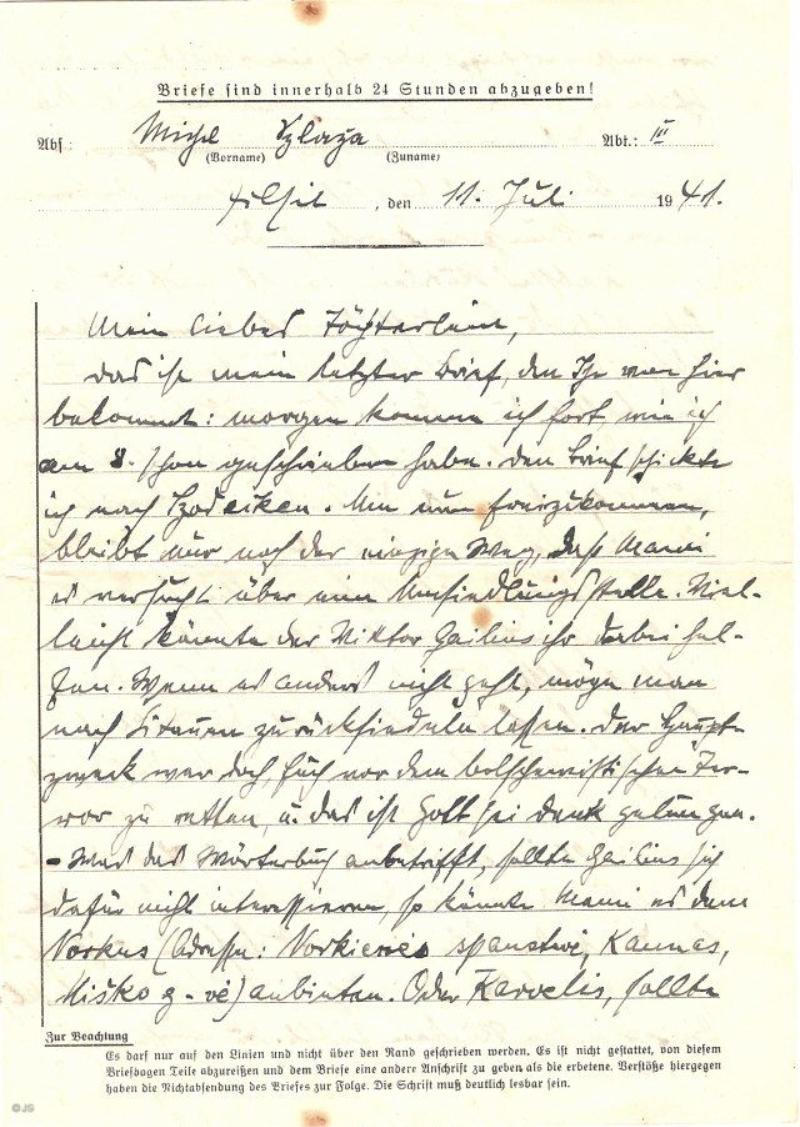 Briefe sind innerhalb 24 Stunden abzugeben!
Abs.: Michel Szlaža Abt.: III
(Vorname) (Zuname)
Tilsit, den 11. Juli 1941.
Mein liebes Töchterlein,
das ist mein letzter Brief, den Ihr von hier
bekommt: morgen komme ich fort, wie ich
am 8. schon geschrieben habe. Den Brief schickte
ich nach . Um nun freizukommen,
bleibt nur noch der einzige Weg, daß Mami
es versucht über eine Umsiedlungsstelle. Viel-
leicht könnte der Viktor Gailius ihr dabei hel-
fen. Wenn es anders nicht geht, möge man
nach Litauen zurücksiedeln lassen. Der Haupt-
zweck war doch, Euch vor dem bolschewistischen Ter-
ror zu retten, u. das ist Gott sei Dank gelungen.
- Was das Wörterbuch anbetrifft, sollte Gailius sich
dafür nicht interessieren, so könnte Mami es dem
Vorkus (Adresse: spaustuvė, Kaunas,
Miško g-vė) anbieten. Oder Karvelis, sollte
Zur Beachtung
Es darf nur auf den Linien und nicht über den Rand geschrieben werden. Es ist nicht gestattet, von diesem
Briefbogen Teile abzureißen und dem Briefe eine andere Anschrift zu geben als die erbetene. Verstöße hiergegen
haben die Nichtabsendung des Briefes zur Folge. Die Schrift muß deutlich lesbar sein.
©JS